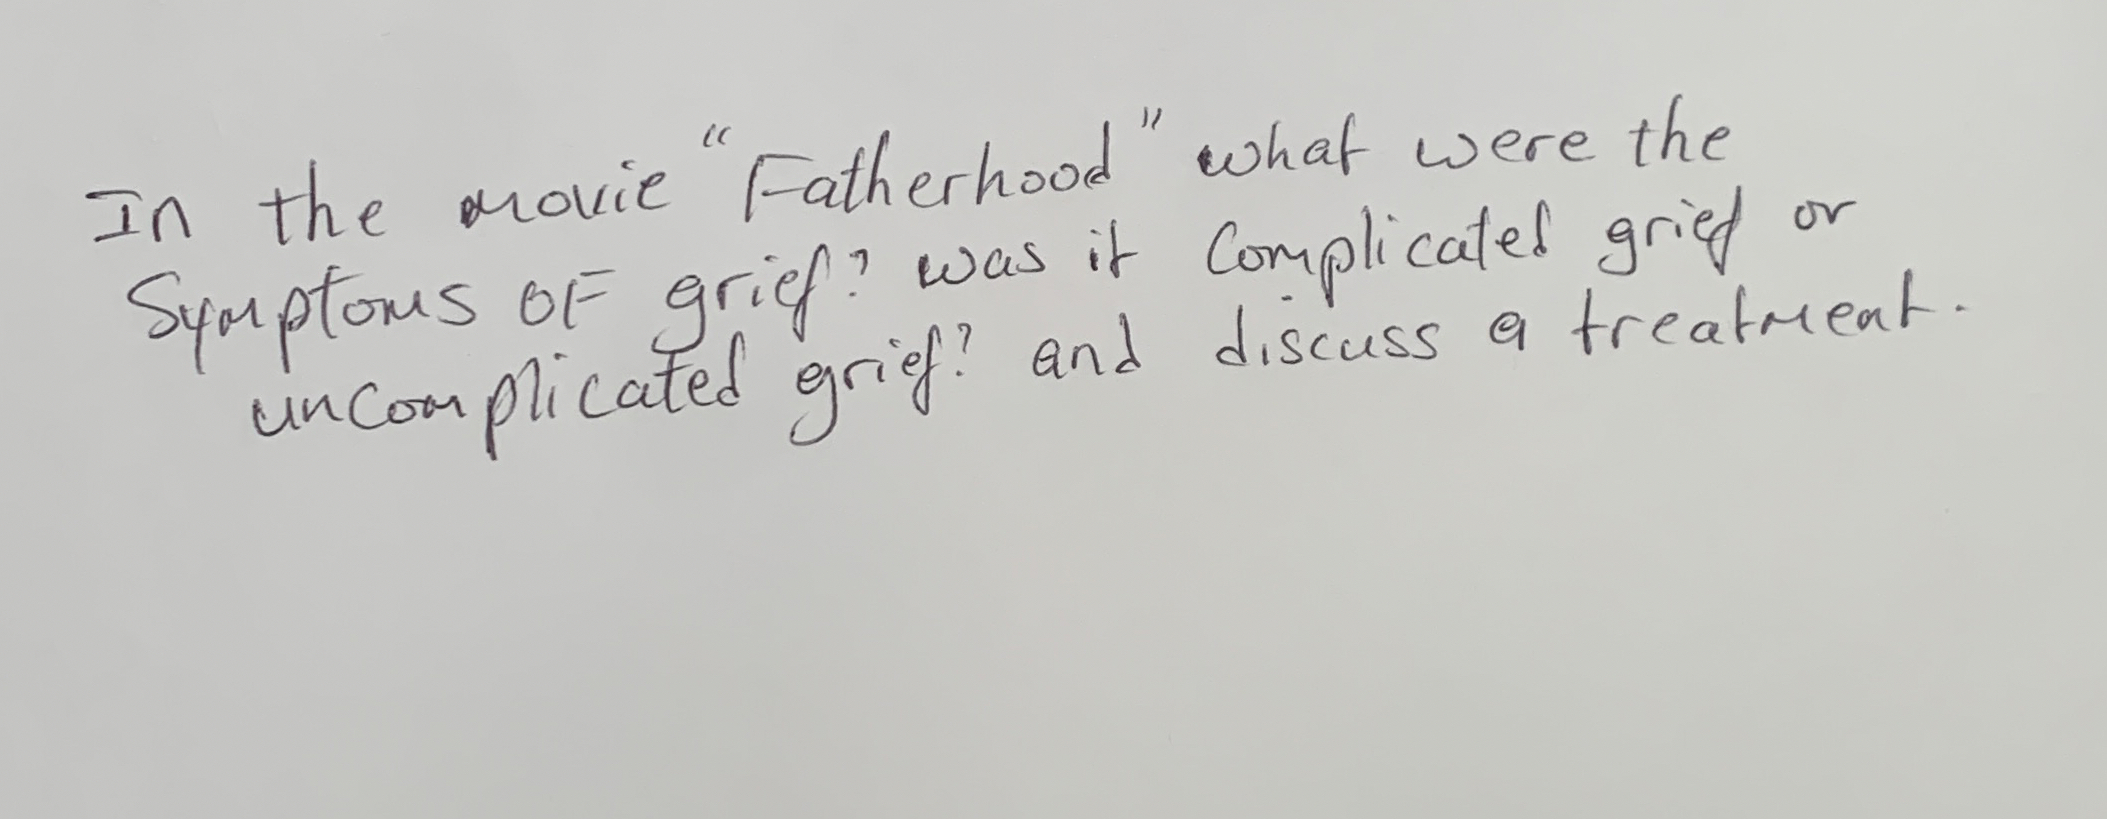 In the movie "Fatherhood" what were the
Symptoms OF grief? was it Complicated grief or
uncomplicated grief? and discuss a treatment.